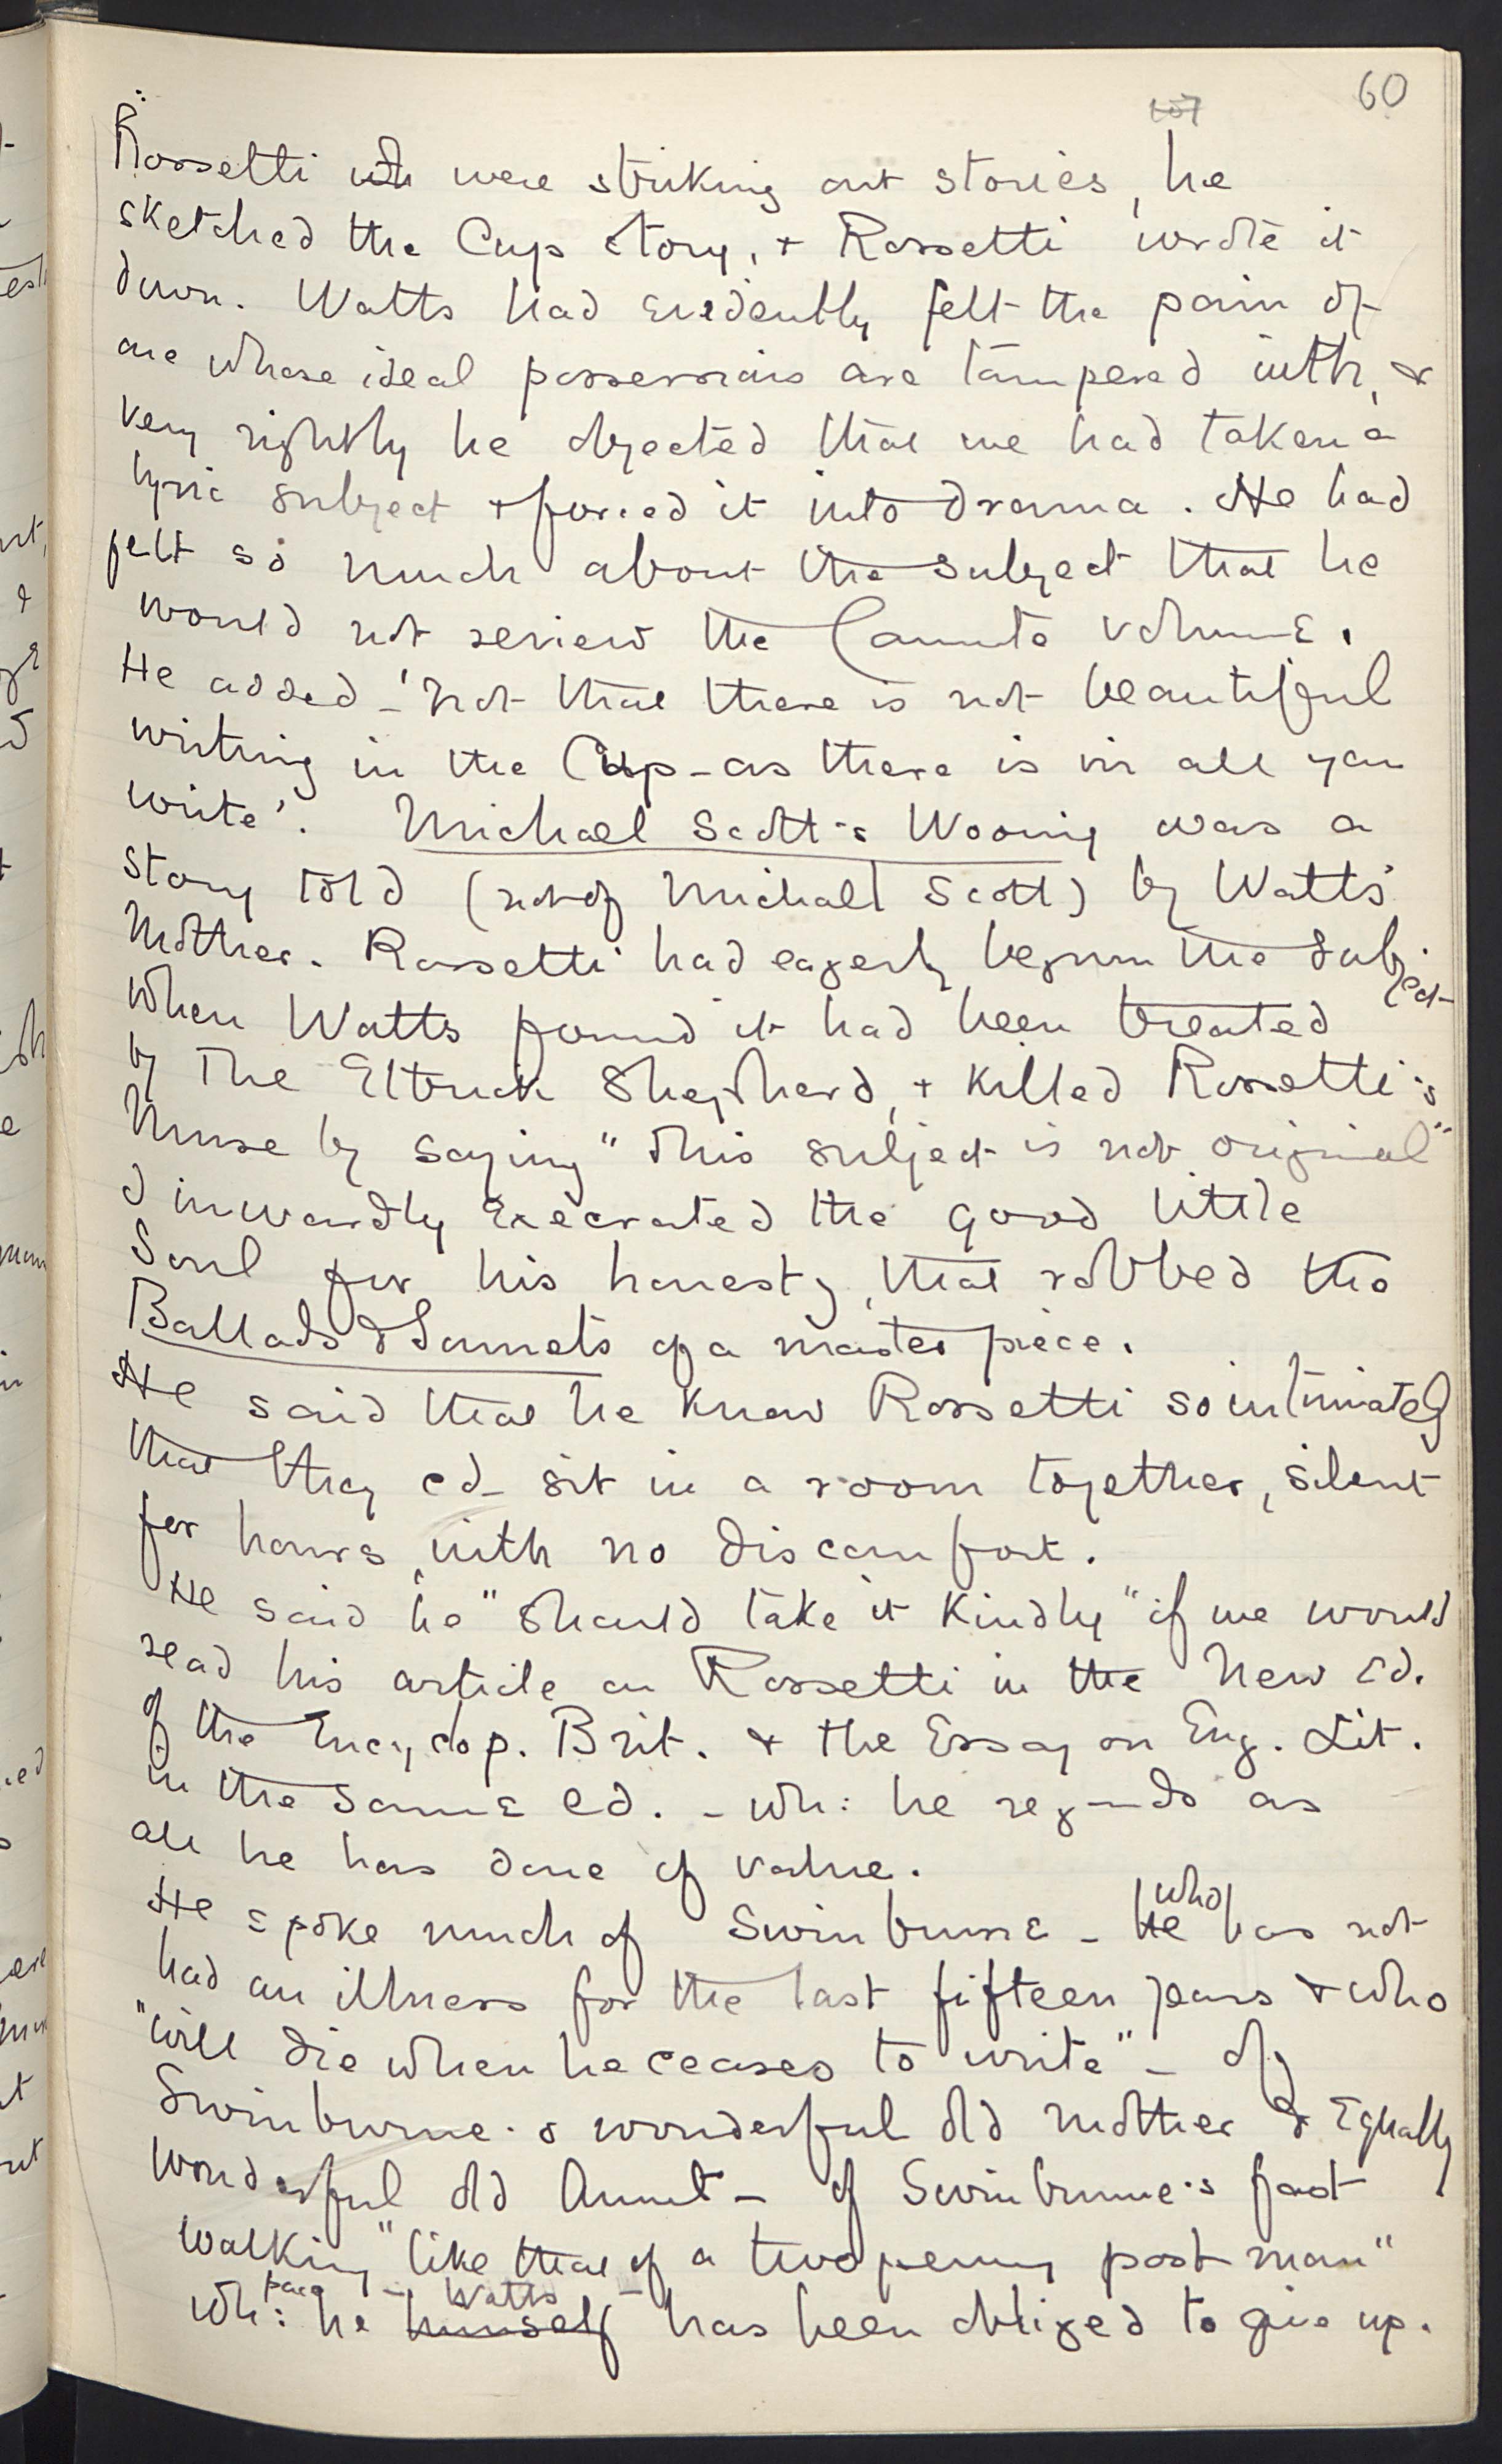 60
Rossetti were striking out stories, he
sketched the Cup story, + Rossetti wrote it
down. Watts had evidently felt the pain of
one whose ideal possessions are tampered with, &
very rightly he objected that we had taken a
lyric subject + forced it into drama. He had
felt so much about the subject that he
would not review the Canute volume.
He added - 'not that there is not beautiful
writing in the Cup - as there is in all you
write'. Michael Scott's Wooing was a
story told (not of Michael Scott) by Watts'
Mother. Rossetti had eagerly begun the subject
when Watts found it had been treated
by The Ettrick Shepherd, + killed Rossetti's
Muse by saying "this subject is not original"
I inwardly execrated the good little
Soul for his honesty, that robbed the
Ballads & Sonnets of a master piece.
He said that he knew Rossetti so intimately
that they cd sit in a room together, silent
for hours, with no discomfort.
He said he "should take it kindly" if we would
read his article on Rossetti in the New Ed.
of the Encyclop. Brit. & the Essay on Eng. Lit.
in the same ed. - wh: he regards as
all he has done of value.
He spoke much of Swinburne - He who has not
had an illness for the last fifteen years & who
"will die when he ceases to write" - of
Swinburne's wonderful old mother & equally
wonderful old Aunt - of Swinburne's fast
walking "like that of a twopenny post man"
wh: pace he himself - Watts - has been obliged to give up.